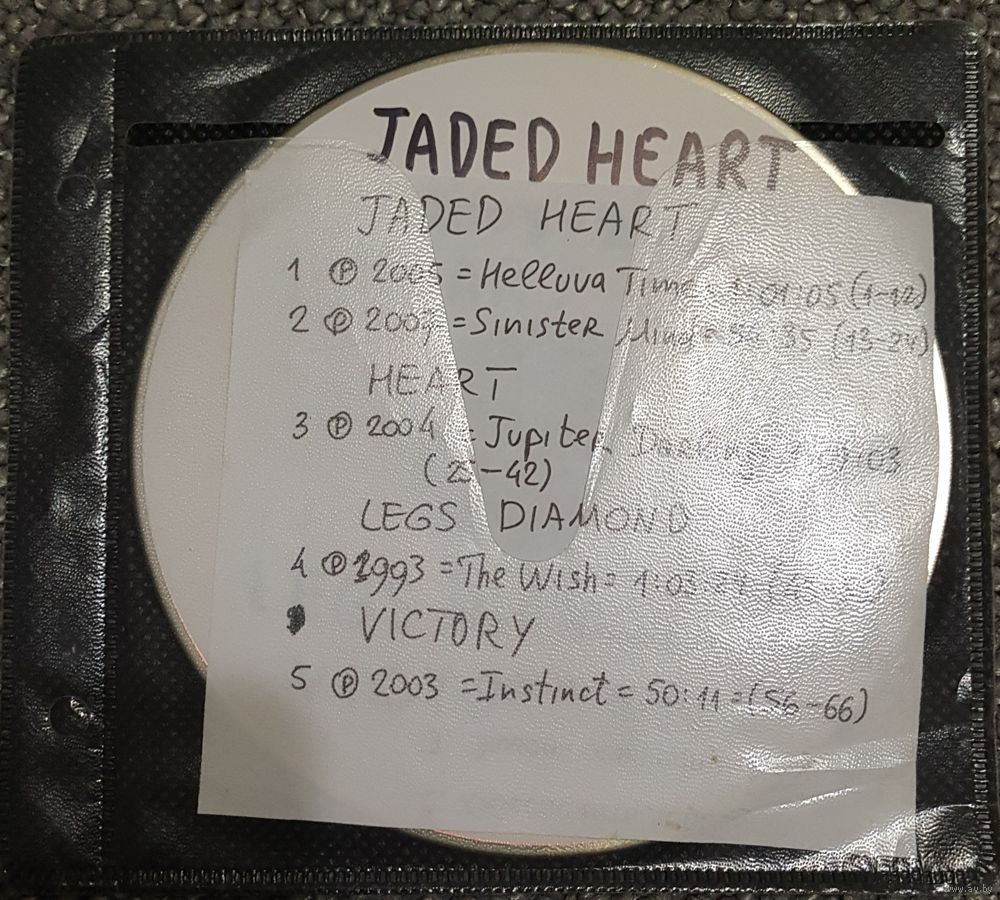 JADED HEART
JADED HEART
1 Ⓟ 2005 = Helluva Time 1:01:05 (1-12)
2 Ⓟ = Sinister Mind = 35 (13-24)
HEART
3 Ⓟ 2004 = Jupiter
(25-42)
LEGS DIAMOND
4 Ⓟ 1993 = The Wish = 1:03:
VICTORY
5 Ⓟ 2003 = Instinct = 50:11 = (56-66)
www.ay.by